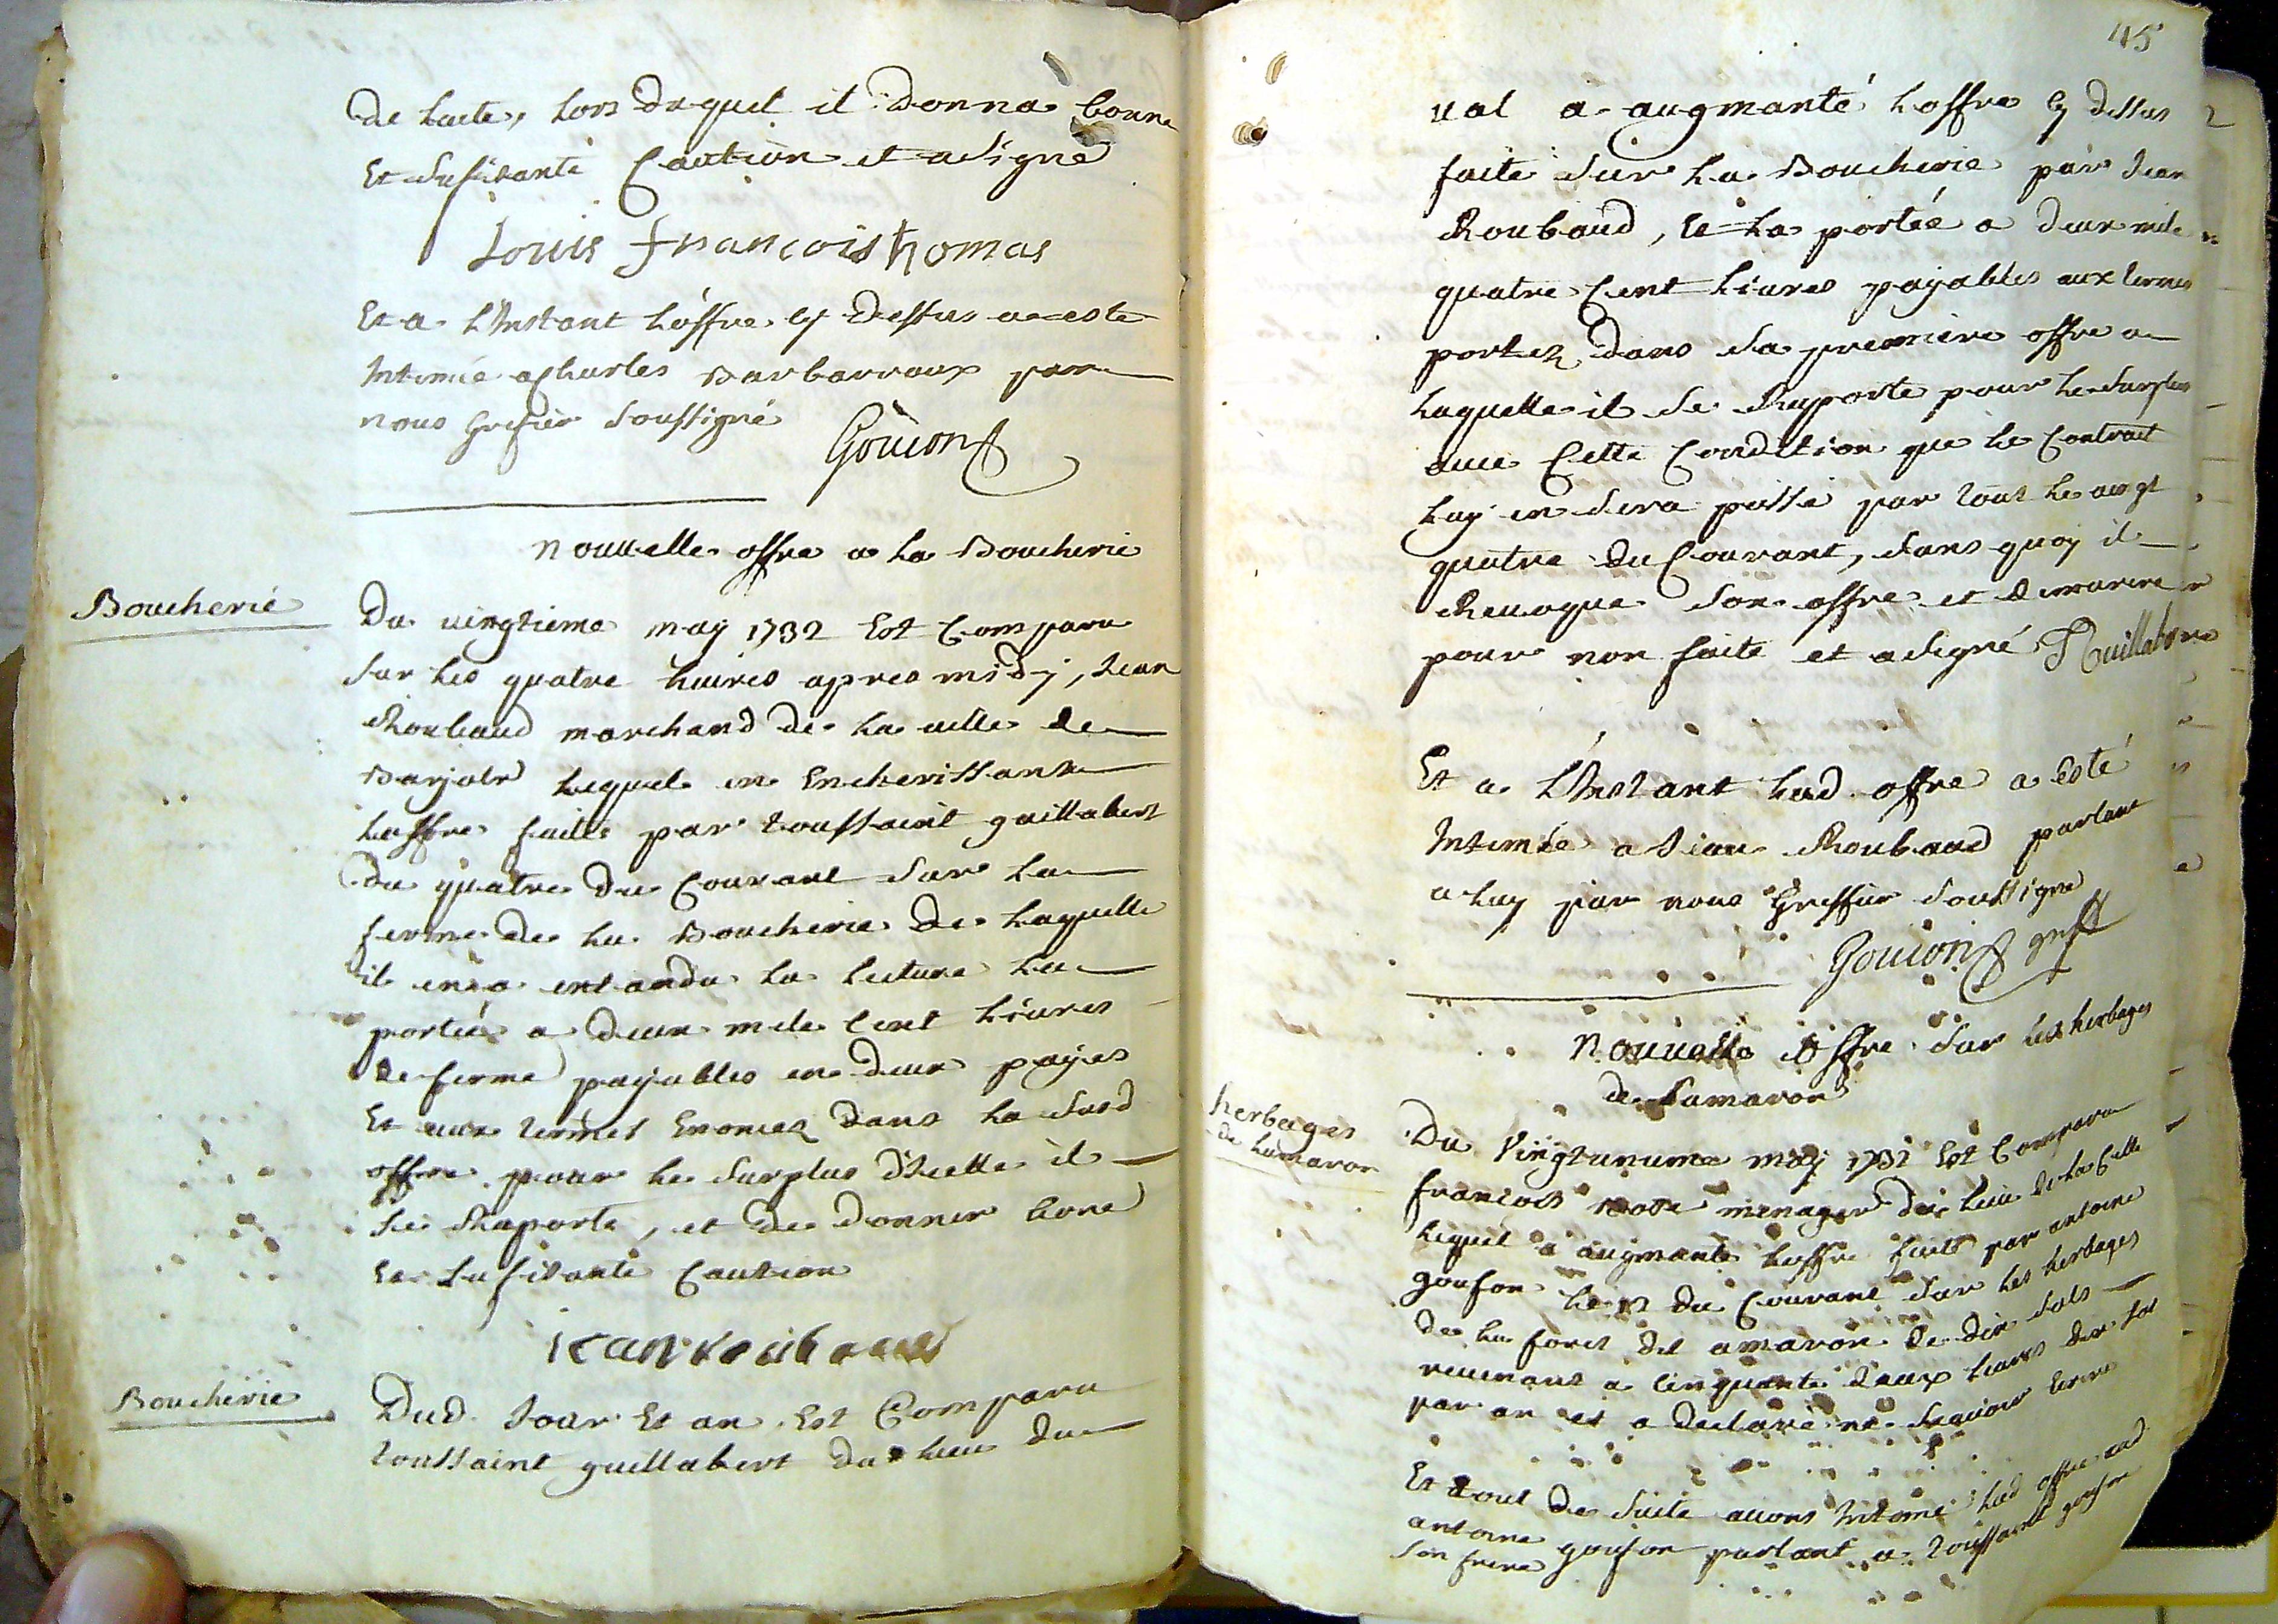 de lacte, lors duquel il donna bonne
Et Sufisante Caution et a signé
Louis francois thomas
Et a l'Instant L'offre cy dessus a esté
Intimée a Charles Barbarroux par
nous Grefier soussigné Gouion
nouvelle offre a la Boucherie
Boucherie
Du vingtieme may 1732 Est Comparu
sur les quatre heures apres midy, Jean
Roubaud marchand de la ville de
Barjols lequel en Encherissant
Loffre faite par toussaint guillabert
du quatre du Courant sur la
ferme de la Boucherie de laquelle
il en a entandu la lecture la
portée a deux mile Cent Livres
de ferme payables en deux payes
Et aux termes Enoncez dans la susd
offre pour le surplus d'Icelle il
se Raporte, et de donner bone
Et Sufisante Caution
jean roubaud
Boucherie
Dud. Jour Et an Est Comparu
toussaint guillabert du lieu du
45
val a augmanté Loffre cy dessus
faite sur la Boucherie par Jean
Roubaud, Et la portée a deux mile
quatre Cent Livres payables aux termes
portez dans sa premiere offre a
laquelle il se Raporte pour le surplus
avec Cette Condition que le Contrat
luy en sera passé par tout le vingt
quatre du Courant, sans quoy il
Revoque son offre et demurera
pour non faite et a signé T Guillabert
Et a l'Instant lad. offre a esté
Intimée a Jean Roubaud parlant
a luy par nous Greffier soussigné
Gouion greff
Nouvelle offre sur les herbages
de Lamaron
herbages
de Lamaron
Du Vingtunieme may 1732 Est Comparu
francois menager du lieu de la Celle
lequel a augmanté Loffre faite par antoine
goufon le du Courant sur les herbages
de la forest del amaron de dix sols
revenant a cinquante deux livres dix sol
par an et a declaré ne scavoir ecrire
Et tout de suite avons Intimé lad offre aud
antoine goufon parlant a toussaint goufon
son frere